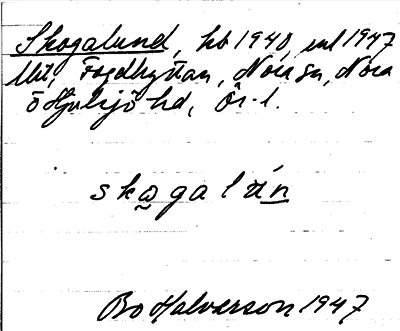 Skogalund, hb 1940, ml 1947
Utt, Fogdhyttan, Nora sn, Nora
o Hjulsjö hd, Ör. l.
skogalún
Bo Halverson 1947